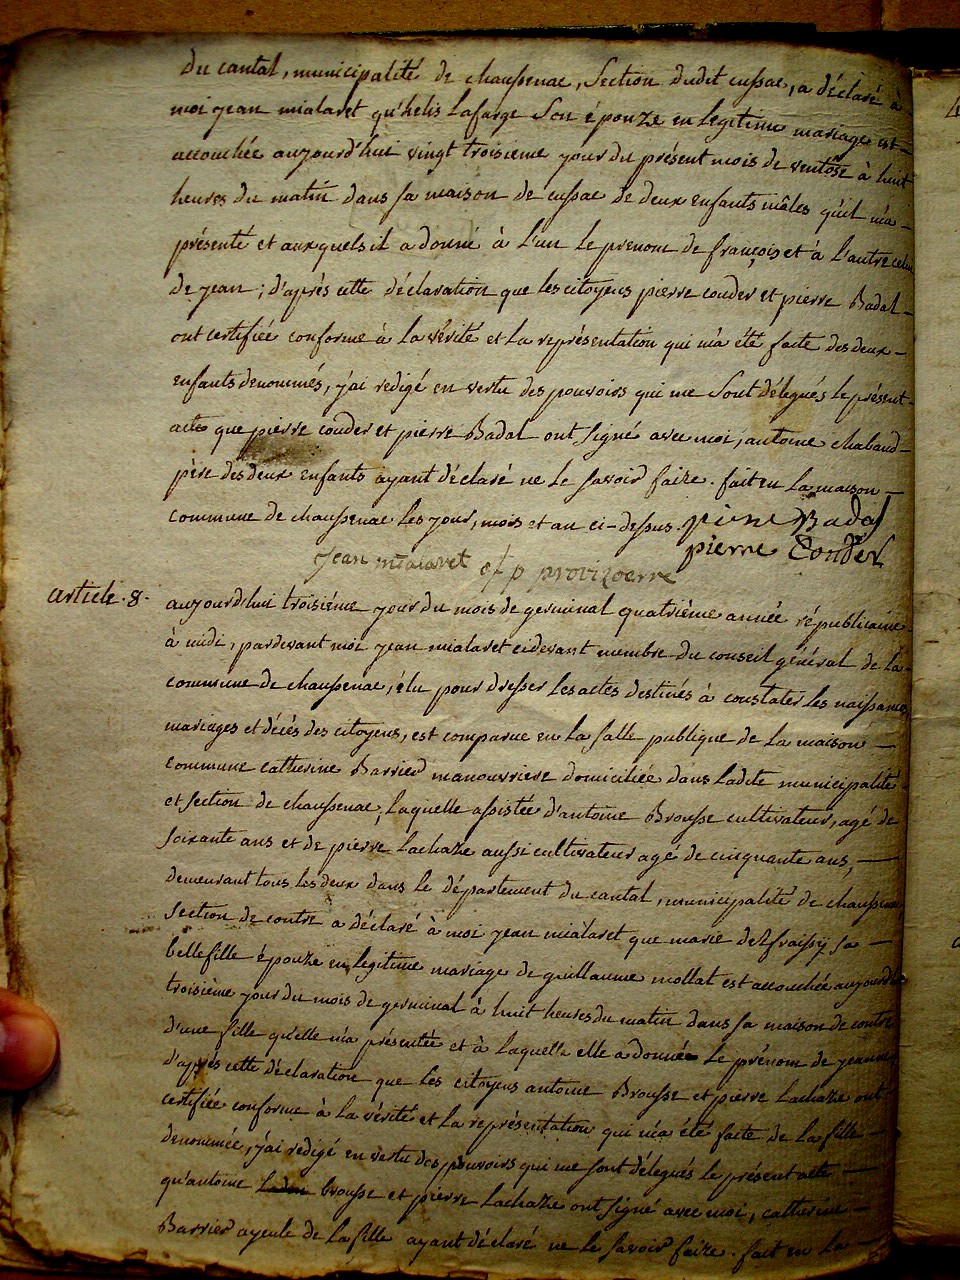 Du cantal, municipalité de chaussenac, Section dudit cussac, a déclaré à
moi jean mialaret qu'helis Lafarge Son épouze en legitime mariage est
accouchée aujourd'hui vingt troisieme jour du présent mois de ventose à huit
heures du matin dans sa maison de cussac de deux enfants mâles qu'il m'a
présenté et auxquels il a donné à l'un le prenom de françois et à l'autre celui
de jean ; d'aprés cette déclaration que les citoyens pierre couder et pierre Badal
ont certifiée conforme à la vérité et la représentation qui m'a été faite des deux
enfants denommés, j'ai redigé en vertu des pouvoirs qui me sont délegués le présent
acte que pierre couder et pierre Badal ont signé avec moi, antoine chabaud
père des deux enfants ayant déclaré ne le savoir faire. fait en la maison
commune de chaussenac les jour, mois et an ci-dessus. pierre Badal
pierre Couder
jean mialaret provizoerre
article 8. aujourd'hui troisième jour du mois de germinal quatrième année républicaine
à midi, pardevant moi jean mialaret cidevant membre du conseil général de la
commune de chaussenac, élu pour dresser les actes destinés à constater les naissances
mariages et décés des citoyens, est comparue en la salle publique de la maison
commune catherine Barrier manouvriere domiciliée dans ladite municipalité
et section de chaussenac, laquelle assistée d'antoine Brousse cultivateur, agé de
soixante ans et de pierre Lachaze aussi cultivateur agé de cinquante ans,
demeurant tous les deux dans le département du cantal, municipalité de chaussenac,
section de contre a déclaré à moi jean mialaret que marie sa
bellefille épouze en legitime mariage de guillaume mollat est accouchée aujourd'hui
troisième jour du mois de germinal à huit heures du matin dans sa maison de contre
d'une fille qu'elle m'a présentée et à laquelle elle a donnée le prénom de jeanne
d'après cette déclaration que les citoyens antoine Brousse et pierre Lachaze ont
certifiée conforme à la vérité et la représentation qui m'a été faite de la fille
denommée, j'ai redigé en vertu des pouvoirs qui me sont délegués le présent acte
qu'antoine brousse et pierre Lachaze ont signé avec moi, catherine
Barrier ayeule de la fille ayant déclaré ne le savoir faire. fait en la